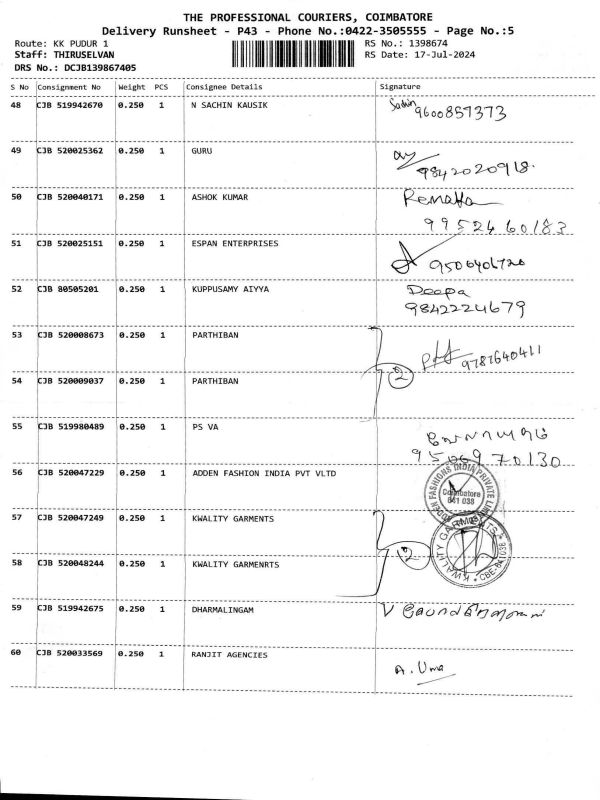 THE PROFESSIONAL COURIERS, COIMBATORE
Delivery Runsheet - P43 - Phone No.:0422-3505555 - Page No.:5
Route: KK PUDUR 1 RS No.: 1398674
Staff: THIRUSELVAN RS Date: 17-Jul-2024
DRS No.: DCJB139867405
S No Consignment No Weight PCS Consignee Details Signature
48 CJB 519942670 0.250 1 N SACHIN KAUSIK Sachin
9600857373
49 CJB 520025362 0.250 1 GURU
9842020918.
50 CJB 520040171 0.250 1 ASHOK KUMAR
9952460183
51 CJB 520025151 0.250 1 ESPAN ENTERPRISES
9506406720
52 CJB 80505201 0.250 1 KUPPUSAMY AIYYA Deepa
9842224679
53 CJB 520008673 0.250 1 PARTHIBAN
2 9787640411
54 CJB 520009037 0.250 1 PARTHIBAN
55 CJB 519980489 0.250 1 PS VA
970130
56 CJB 520047229 0.250 1 ADDEN FASHION INDIA PVT VLTD
ADDEN FASHIONS INDIA PRIVATE LIMITED
Coimbatore
641 038
57 CJB 520047249 0.250 1 KWALITY GARMENTS
2 KWALITY GARMENTS CBE-641038
58 CJB 520048244 0.250 1 KWALITY GARMENRTS
59 CJB 519942675 0.250 1 DHARMALINGAM V
60 CJB 520033569 0.250 1 RANJIT AGENCIES
A. Uma